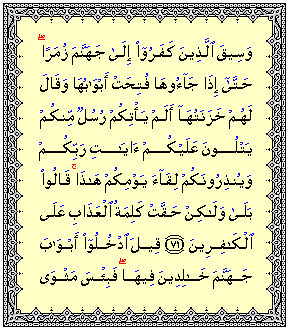 وَسِيقَ ٱلَّذِينَ كَفَرُوٓاْ إِلَىٰ جَهَنَّمَ زُمَرًاۖ
حَتَّىٰٓ إِذَا جَآءُوهَا فُتِحَتۡ أَبۡوَٰبُهَا وَقَالَ
لَهُمۡ خَزَنَتُهَآ أَلَمۡ يَأۡتِكُمۡ رُسُلٞ مِّنكُمۡ
يَتۡلُونَ عَلَيۡكُمۡ ءَايَٰتِ رَبِّكُمۡ
وَيُنذِرُونَكُمۡ لِقَآءَ يَوۡمِكُمۡ هَٰذَاۚ قَالُواْ
بَلَىٰ وَلَٰكِنۡ حَقَّتۡ كَلِمَةُ ٱلۡعَذَابِ عَلَى
ٱلۡكَٰفِرِينَ ٧١ قِيلَ ٱدۡخُلُوٓاْ أَبۡوَٰبَ
جَهَنَّمَ خَٰلِدِينَ فِيهَاۖ فَبِئۡسَ مَثۡوَى